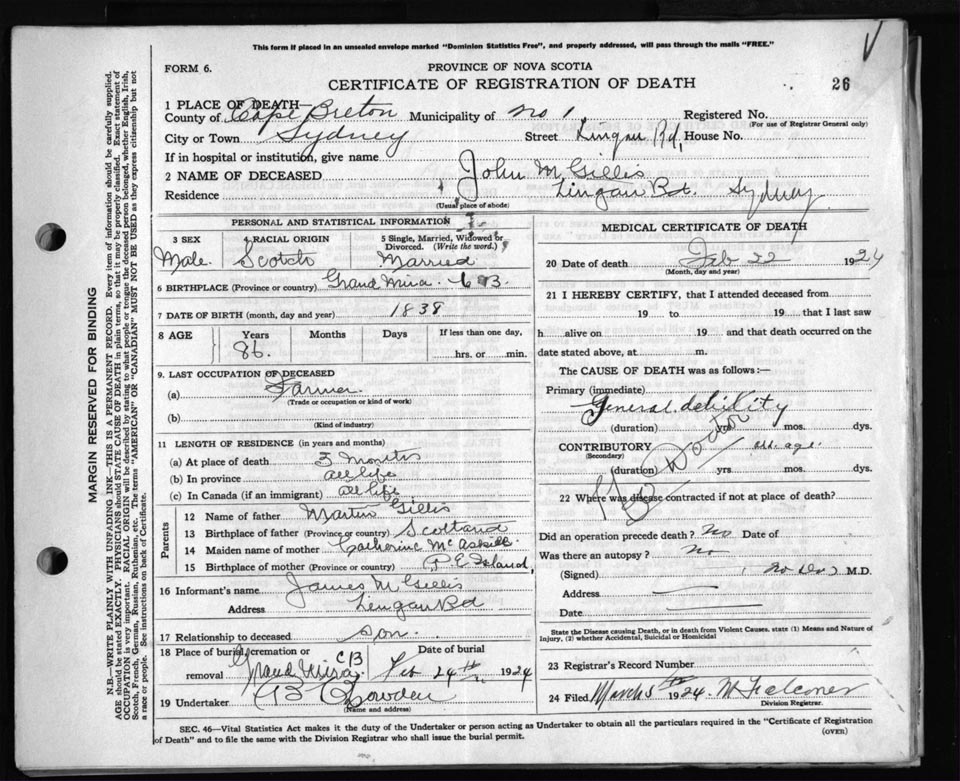 This form if placed in an unsealed envelope marked "Dominion Statistics Free", and properly addressed, will pass through the mails "FREE."
V
FORM 6.
PROVINCE OF NOVA SCOTIA
CERTIFICATE OF REGISTRATION OF DEATH
26
1 PLACE OF DEATH—
County of Cape Breton Municipality of No 1 Registered No.
(For use of Registrar General only)
City or Town Sydney Street Lingan Rd, House No.
If in hospital or institution, give name
2 NAME OF DECEASED John M Gillis
Residence Lingan Rd. Sydney
(Usual place of abode)
PERSONAL AND STATISTICAL INFORMATION
3 SEX 4 RACIAL ORIGIN 5 Single, Married, Widowed or Divorced. (Write the word.)
Male. Scotch Married
6 BIRTHPLACE (Province or country) Grand Mira. C B.
7 DATE OF BIRTH (month, day and year) 1838
8 AGE Years Months Days If less than one day,
86. hrs. or min.
9. LAST OCCUPATION OF DECEASED
(a) Farmer
(Trade or occupation or kind of work)
(b)
(Kind of industry)
11 LENGTH OF RESIDENCE (in years and months)
(a) At place of death 3 months
(b) In province all life
(c) In Canada (if an immigrant) all life
Parents
12 Name of father Martin Gillis
13 Birthplace of father (Province or country) Scotland
14 Maiden name of mother Catherine McAskill
15 Birthplace of mother (Province or country) P. E Island,
16 Informant's name James M Gillis
Address Lingan Rd
17 Relationship to deceased son.
18 Place of burial, cremation or removal Grand Mira CB
Date of burial Feb 24th 1924
19 Undertaker
(Name and address)
MEDICAL CERTIFICATE OF DEATH
20 Date of death Feb 22 1924
(Month, day and year)
21 I HEREBY CERTIFY, that I attended deceased from
19 to 19 that I last saw
h alive on 19 and that death occurred on the
date stated above, at m.
The CAUSE OF DEATH was as follows:—
Primary (immediate)
General debility
(duration) yrs. mos. dys.
CONTRIBUTORY old age.
(Secondary)
(duration) yrs mos. dys.
No Doctor
22 Where was disease contracted if not at place of death?
Did an operation precede death? No Date of
Was there an autopsy? No
(Signed) M.D.
Address
Date
State the Disease causing Death, or in death from Violent Causes, state (1) Means and Nature of Injury, (2) whether Accidental, Suicidal or Homicidal
23 Registrar's Record Number
24 Filed March 5th 1924. M Falconer
Division Registrar.
SEC. 46—Vital Statistics Act makes it the duty of the Undertaker or person acting as Undertaker to obtain all the particulars required in the "Certificate of Registration
of Death" and to file the same with the Division Registrar who shall issue the burial permit.
(OVER)
MARGIN RESERVED FOR BINDING
N.B.—WRITE PLAINLY WITH UNFADING INK—THIS IS A PERMANENT RECORD. Every item of information should be carefully supplied.
AGE should be stated EXACTLY. PHYSICIANS should STATE CAUSE OF DEATH in plain terms, so that it may be properly classified. Exact statement of
OCCUPATION is very important. RACIAL ORIGIN will be described by stating to what people or tongue the deceased person belonged, whether English, Irish,
Scotch, French, German, Russian, Ruthenian, etc. The terms "AMERICAN" OR "CANADIAN" MUST NOT BE USED as they express citizenship but not
a race or people. See instructions on back of Certificate.